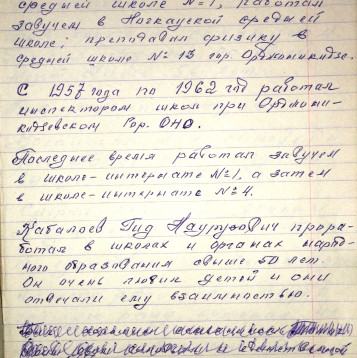 средней школе №1, работал
завучем в Ногкауской средней
школе; преподавал физику в
средней школе № 13 гор. Орджоникидзе.
С 1957 года по 1962 год работал
инспектором школ при Орджони-
кидзевском Гор. ОНО.
Последнее время работал завучем
в школе-интернате №1, а затем
в школе-интернате №4.
Кабалоев Гид Наурузович прора-
ботал в школах и органах народ-
ного образования свыше 50 лет.
Он очень любил детей и они
отвечали ему взаимностью.